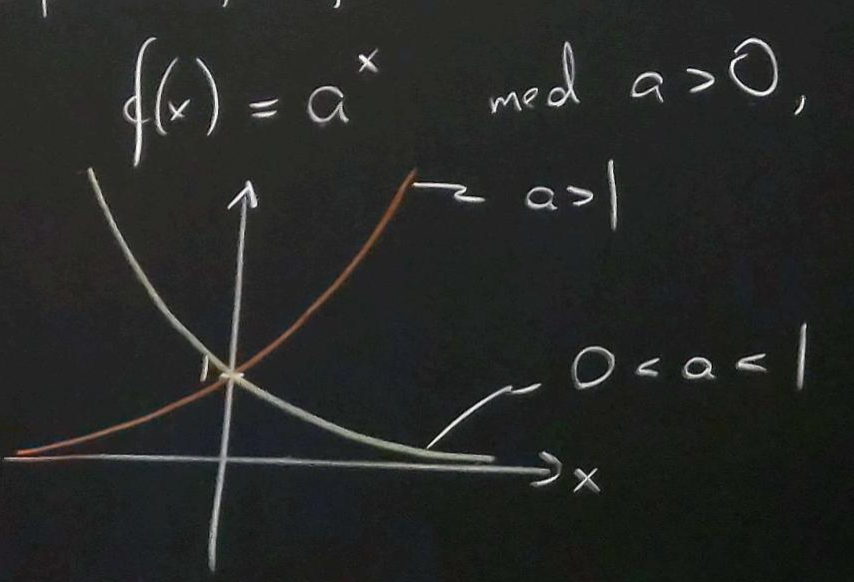 f(x) = a^x med a > 0,
a > 1
1
0 < a < 1
x